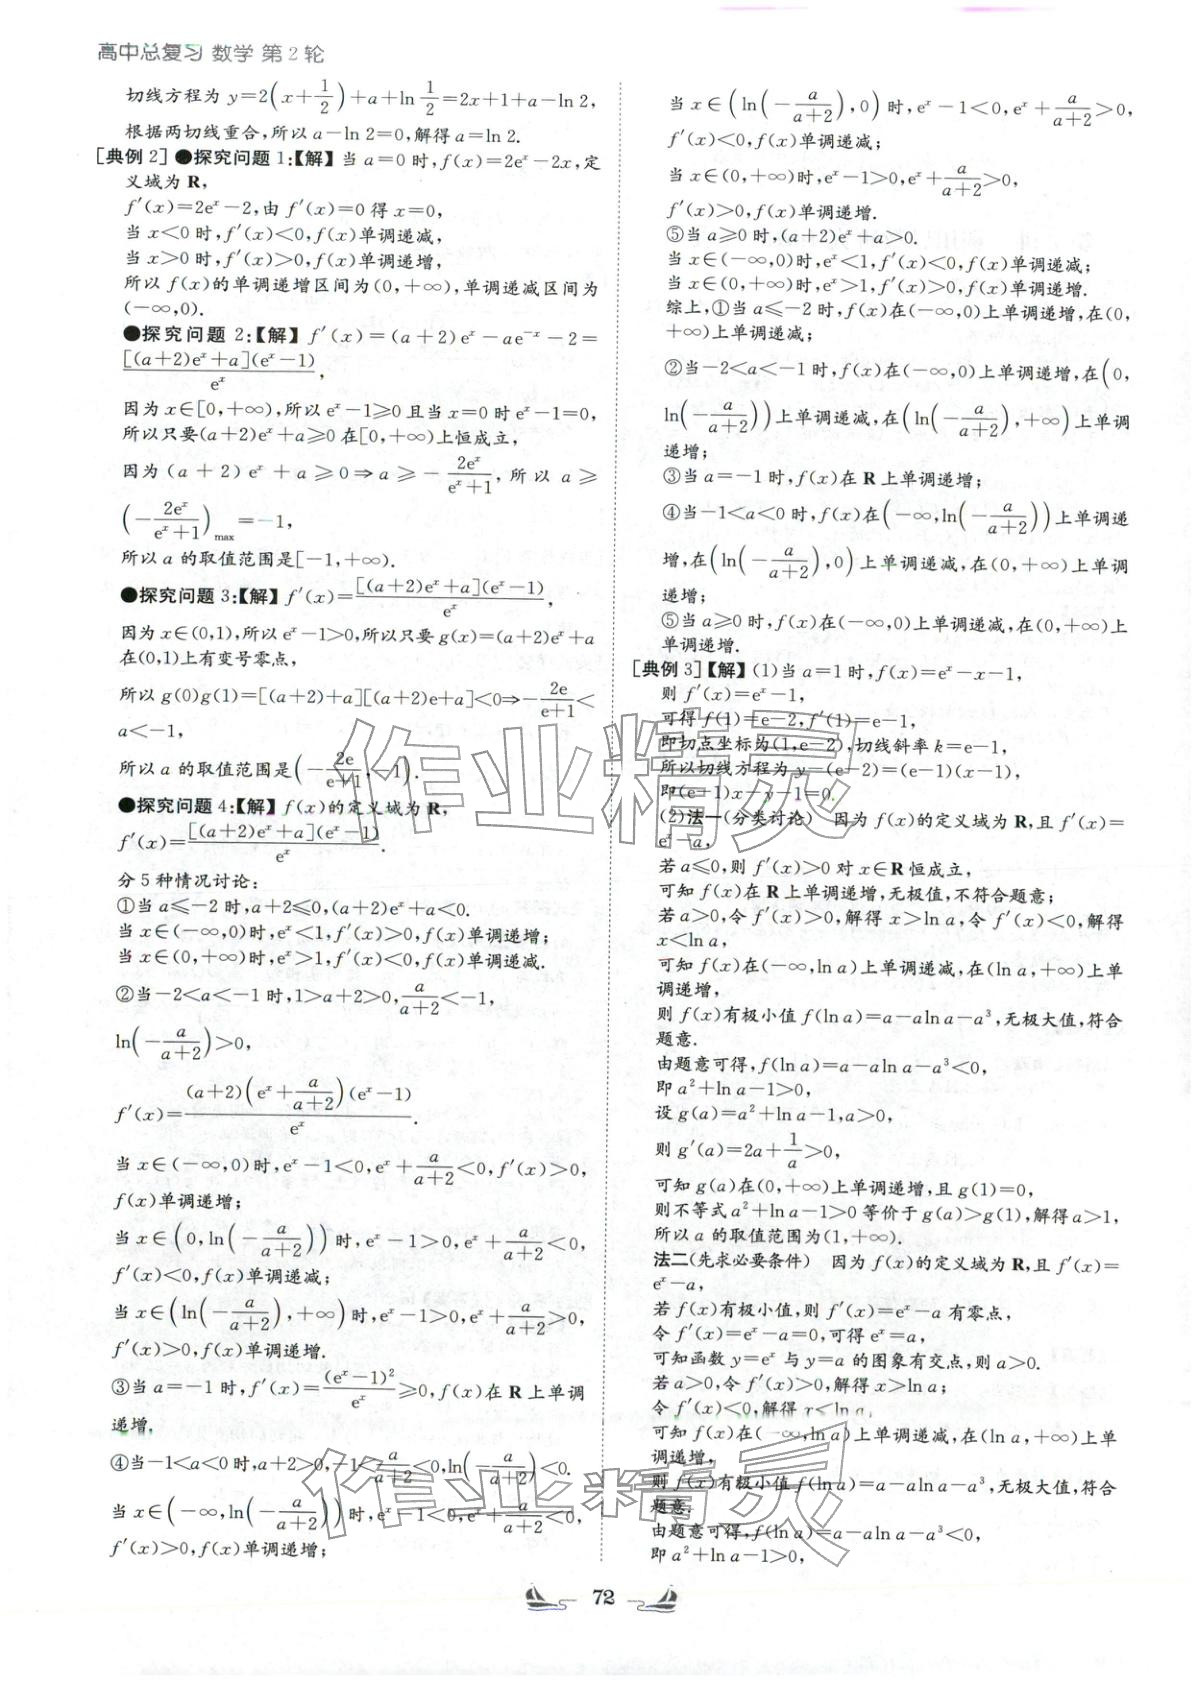 高中总复习 数学 第2轮
切线方程为 y=2(x+1/2)+a+ln 1/2=2x+1+a-ln 2,
根据两切线重合,所以 a-ln 2=0,解得 a=ln 2.
[典例2] ●探究问题1:【解】当 a=0 时,f(x)=2eˣ-2x,定
义域为 R,
f′(x)=2eˣ-2,由 f′(x)=0 得 x=0,
当 x<0 时,f′(x)<0,f(x)单调递减,
当 x>0 时,f′(x)>0,f(x)单调递增,
所以 f(x)的单调递增区间为(0,+∞),单调递减区间为
(-∞,0).
●探究问题2:【解】f′(x)=(a+2)eˣ-ae⁻ˣ-2=
[(a+2)eˣ+a](eˣ-1)/eˣ,
因为 x∈[0,+∞),所以 eˣ-1≥0 且当 x=0 时 eˣ-1=0,
所以只要(a+2)eˣ+a≥0 在[0,+∞)上恒成立,
因为(a+2)eˣ+a≥0⇒a≥-2eˣ/(eˣ+1),所以 a≥
(-2eˣ/(eˣ+1))max=-1,
所以 a 的取值范围是[-1,+∞).
●探究问题3:【解】f′(x)=[(a+2)eˣ+a](eˣ-1)/eˣ,
因为 x∈(0,1),所以 eˣ-1>0,所以只要 g(x)=(a+2)eˣ+a
在(0,1)上有变号零点,
所以 g(0)g(1)=[(a+2)+a][(a+2)e+a]<0⇒-2e/(e+1)<
a<-1,
所以 a 的取值范围是(-2e/(e+1),-1).
●探究问题4:【解】f(x)的定义域为 R,
f′(x)=[(a+2)eˣ+a](eˣ-1)/eˣ.
分5种情况讨论:
①当 a≤-2 时,a+2≤0,(a+2)eˣ+a<0.
当 x∈(-∞,0)时,eˣ<1,f′(x)>0,f(x)单调递增;
当 x∈(0,+∞)时,eˣ>1,f′(x)<0,f(x)单调递减.
②当-2<a<-1 时,1>a+2>0,a/(a+2)<-1,
ln(-a/(a+2))>0,
f′(x)=(a+2)(eˣ+a/(a+2))(eˣ-1)/eˣ.
当 x∈(-∞,0)时,eˣ-1<0,eˣ+a/(a+2)<0,f′(x)>0,
f(x)单调递增;
当 x∈(0,ln(-a/(a+2)))时,eˣ-1>0,eˣ+a/(a+2)<0,
f′(x)<0,f(x)单调递减;
当 x∈(ln(-a/(a+2)),+∞)时,eˣ-1>0,eˣ+a/(a+2)>0,
f′(x)>0,f(x)单调递增.
③当 a=-1 时,f′(x)=(eˣ-1)²/eˣ≥0,f(x)在 R 上单调
递增,
④当-1<a<0 时,a+2>0,-1<a/(a+2)<0,ln(-a/(a+2))<0.
当 x∈(-∞,ln(-a/(a+2)))时,eˣ-1<0,eˣ+a/(a+2)<0,
f′(x)>0,f(x)单调递增;
当 x∈(ln(-a/(a+2)),0)时,eˣ-1<0,eˣ+a/(a+2)>0,
f′(x)<0,f(x)单调递减;
当 x∈(0,+∞)时,eˣ-1>0,eˣ+a/(a+2)>0,
f′(x)>0,f(x)单调递增.
⑤当 a≥0 时,(a+2)eˣ+a>0.
当 x∈(-∞,0)时,eˣ<1,f′(x)<0,f(x)单调递减;
当 x∈(0,+∞)时,eˣ>1,f′(x)>0,f(x)单调递增.
综上,①当 a≤-2 时,f(x)在(-∞,0)上单调递增,在(0,
+∞)上单调递减;
②当-2<a<-1 时,f(x)在(-∞,0)上单调递增,在(0,
ln(-a/(a+2)))上单调递减,在(ln(-a/(a+2)),+∞)上单调
递增;
③当 a=-1 时,f(x)在 R 上单调递增;
④当-1<a<0 时,f(x)在(-∞,ln(-a/(a+2)))上单调递
增,在(ln(-a/(a+2)),0)上单调递减,在(0,+∞)上单调
递增;
⑤当 a≥0 时,f(x)在(-∞,0)上单调递减,在(0,+∞)上
单调递增.
[典例3]【解】(1)当 a=1 时,f(x)=eˣ-x-1,
则 f′(x)=eˣ-1,
可得 f(1)=e-2,f′(1)=e-1,
即切点坐标为(1,e-2),切线斜率 k=e-1,
所以切线方程为 y-(e-2)=(e-1)(x-1),
即(e-1)x-y-1=0.
(2)法一(分类讨论) 因为 f(x)的定义域为 R,且 f′(x)=
eˣ-a,
若 a≤0,则 f′(x)>0 对 x∈R 恒成立,
可知 f(x)在 R 上单调递增,无极值,不符合题意;
若 a>0,令 f′(x)>0,解得 x>ln a,令 f′(x)<0,解得
x<ln a,
可知 f(x)在(-∞,ln a)上单调递减,在(ln a,+∞)上单
调递增,
则 f(x)有极小值 f(ln a)=a-aln a-a³,无极大值,符合
题意.
由题意可得,f(ln a)=a-aln a-a³<0,
即 a²+ln a-1>0,
设 g(a)=a²+ln a-1,a>0,
则 g′(a)=2a+1/a>0,
可知 g(a)在(0,+∞)上单调递增,且 g(1)=0,
则不等式 a²+ln a-1>0 等价于 g(a)>g(1),解得 a>1,
所以 a 的取值范围为(1,+∞).
法二(先求必要条件) 因为 f(x)的定义域为 R,且 f′(x)=
eˣ-a,
若 f(x)有极小值,则 f′(x)=eˣ-a 有零点,
令 f′(x)=eˣ-a=0,可得 eˣ=a,
可知函数 y=eˣ 与 y=a 的图象有交点,则 a>0.
若 a>0,令 f′(x)>0,解得 x>ln a;
令 f′(x)<0,解得 x<ln a,
可知 f(x)在(-∞,ln a)上单调递减,在(ln a,+∞)上单
调递增,
则 f(x)有极小值 f(ln a)=a-aln a-a³,无极大值,符合
题意.
由题意可得,f(ln a)=a-aln a-a³<0,
即 a²+ln a-1>0,
72
作业精灵
作业精灵